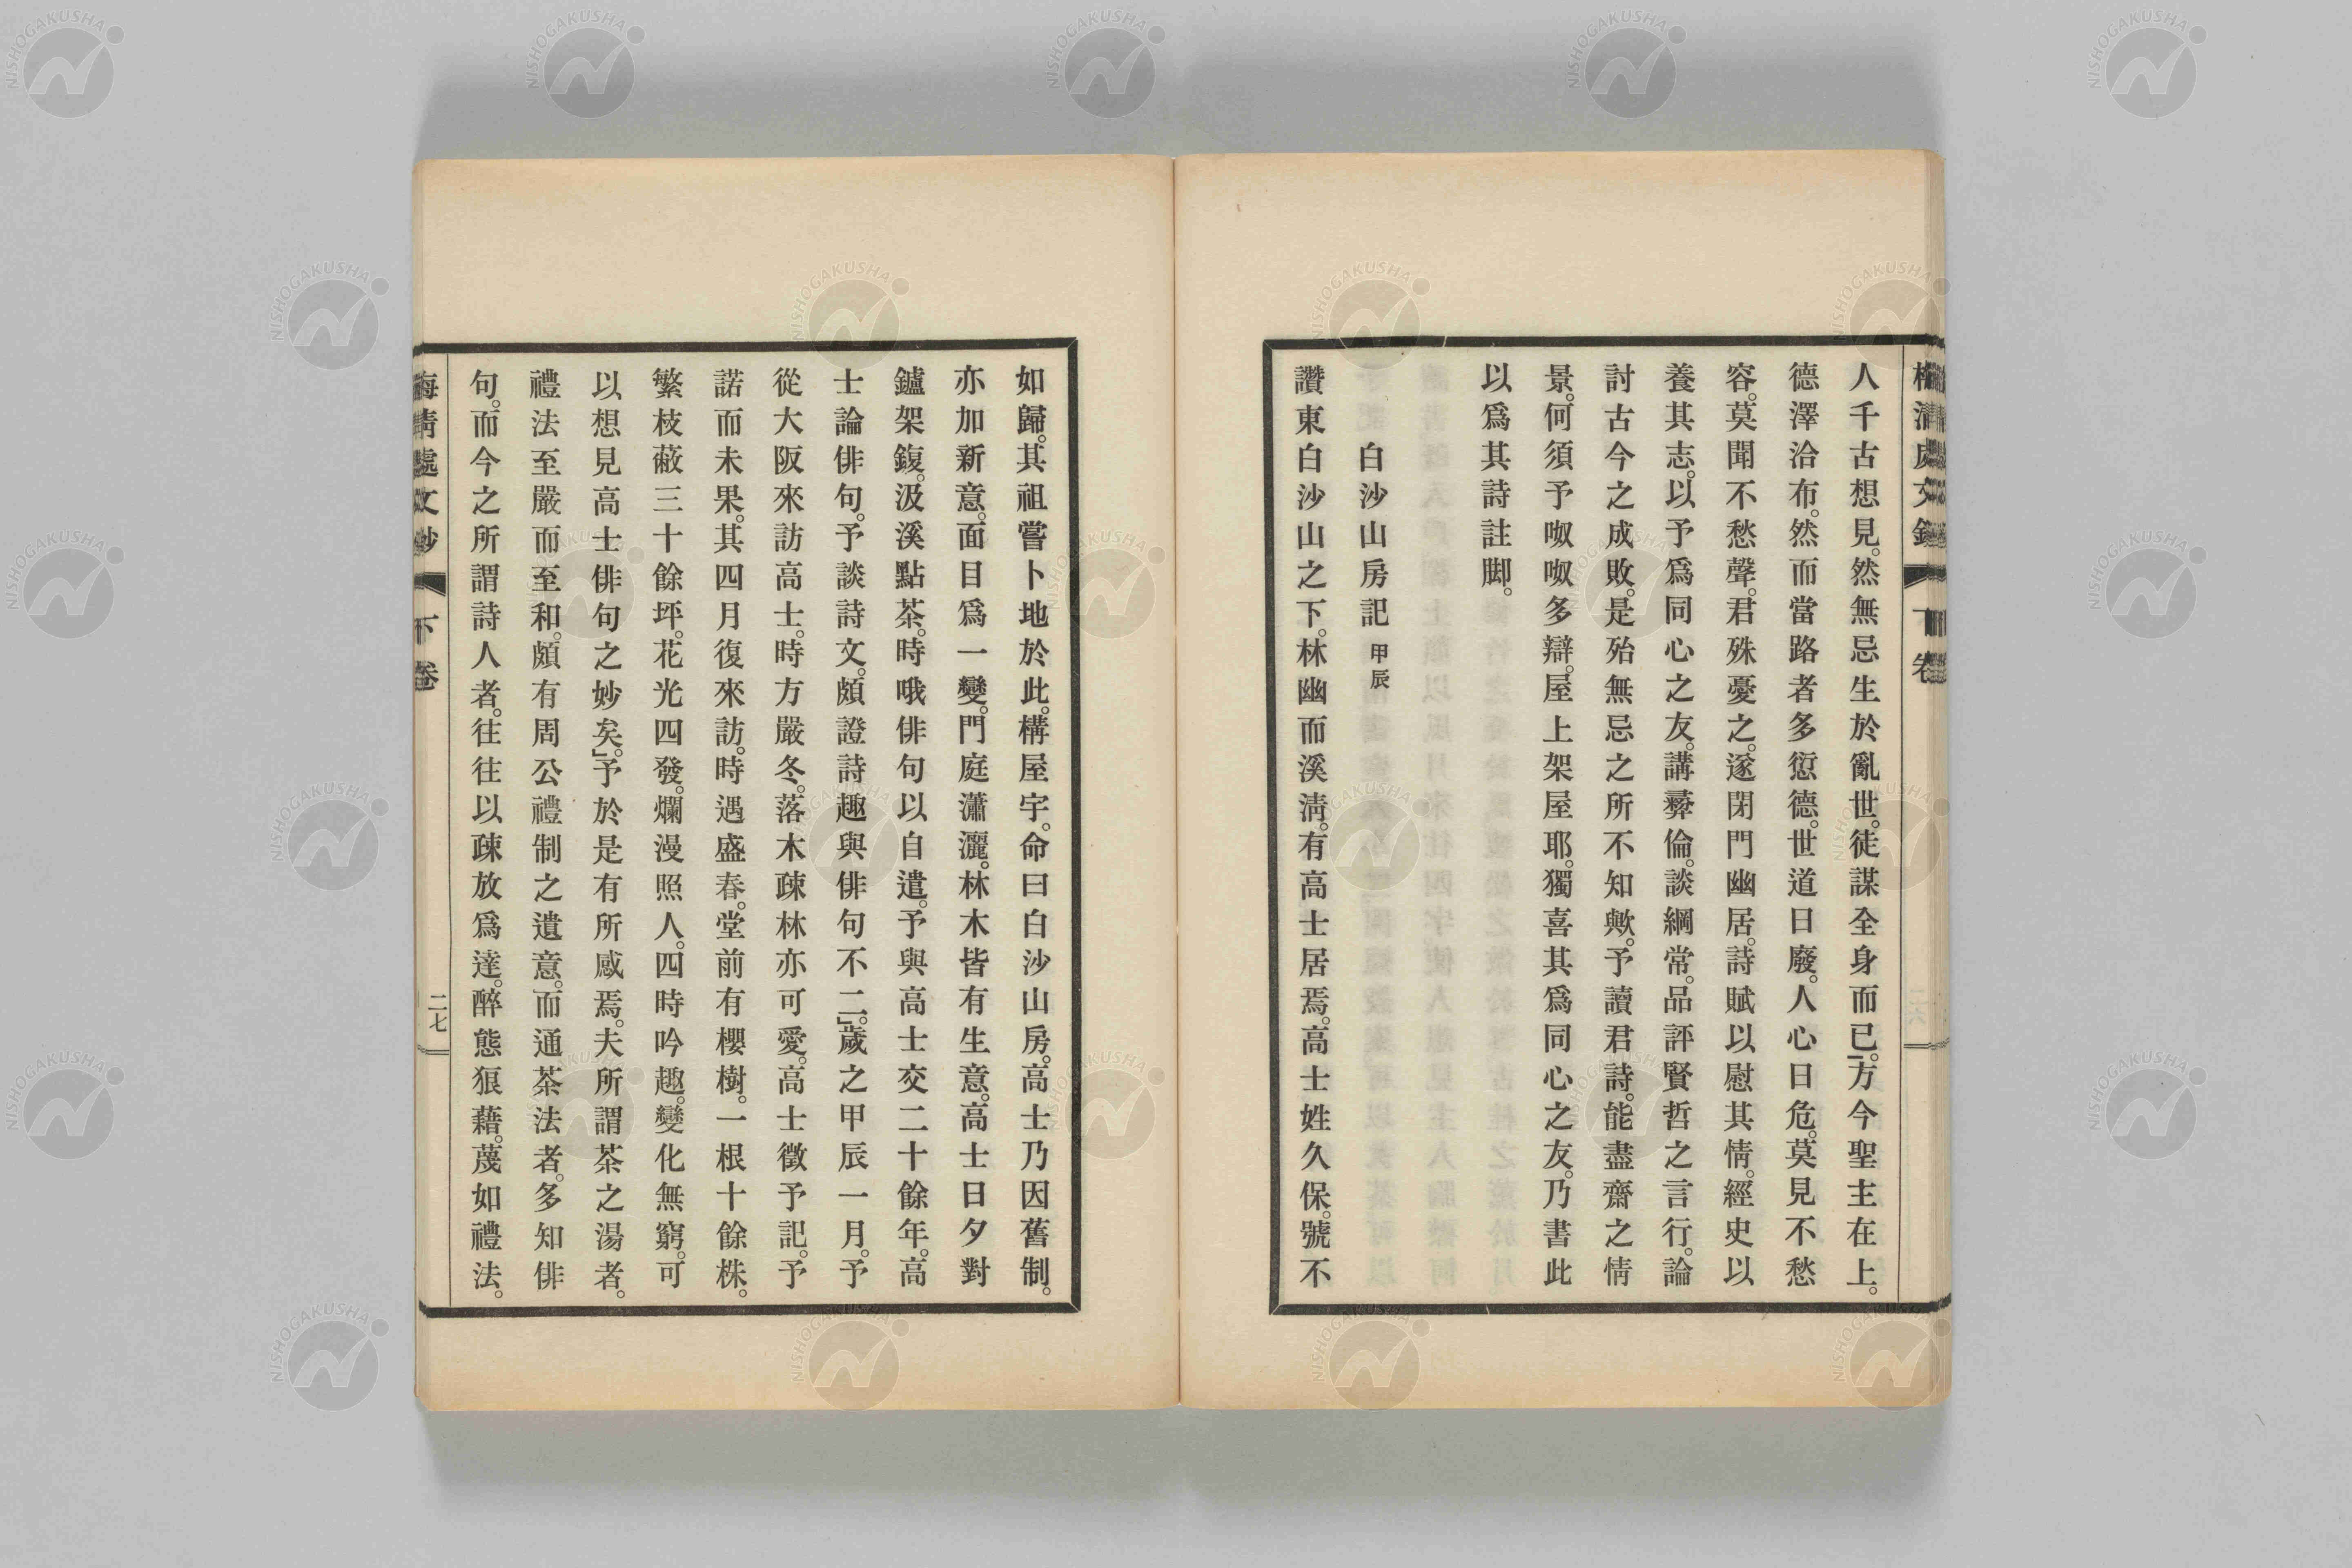 人千古想見。然無忌生於亂世。徒謀全身而已。」方今聖主在上。
德澤洽布。然而當路者多愆德。世道日廢。人心日危。莫見不愁
容。莫聞不愁聲。君殊憂之。遂閉門幽居。詩賦以慰其情。經史以
養其志。以予爲同心之友。講彝倫。談綱常。品評賢哲之言行。論
討古今之成敗。是殆無忌之所不知歟。予讀君詩。能盡齋之情
景。何須予呶呶多辯。屋上架屋耶。獨喜其爲同心之友。乃書此
以爲其詩註脚。
白沙山房記 甲辰
讚東白沙山之下。林幽而溪淸。有高士居焉。高士姓久保。號不
如歸。其祖嘗卜地於此。構屋宇。命曰白沙山房。高士乃因舊制。
亦加新意。面目爲一變。門庭瀟灑。林木皆有生意。高士日夕對
鑪架鍑。汲溪點茶。時哦俳句以自遣。予與高士交二十餘年。高
士論俳句。予談詩文。頗證詩趣與俳句不二。」歲之甲辰一月。予
從大阪來訪高士。時方嚴冬。落木疎林亦可愛。高士徵予記。予
諾而未果。其四月復來訪。時遇盛春。堂前有櫻樹。一根十餘株。
繁枝蔽三十餘坪。花光四發。爛漫照人。四時吟趣。變化無窮。可
以想見高士俳句之妙矣。」予於是有所感焉。夫所謂茶之湯者。
禮法至嚴而至和。頗有周公禮制之遺意。而通茶法者。多知俳
句。而今之所謂詩人者。往往以疎放爲達。醉態狼藉。蔑如禮法。
下卷
二七